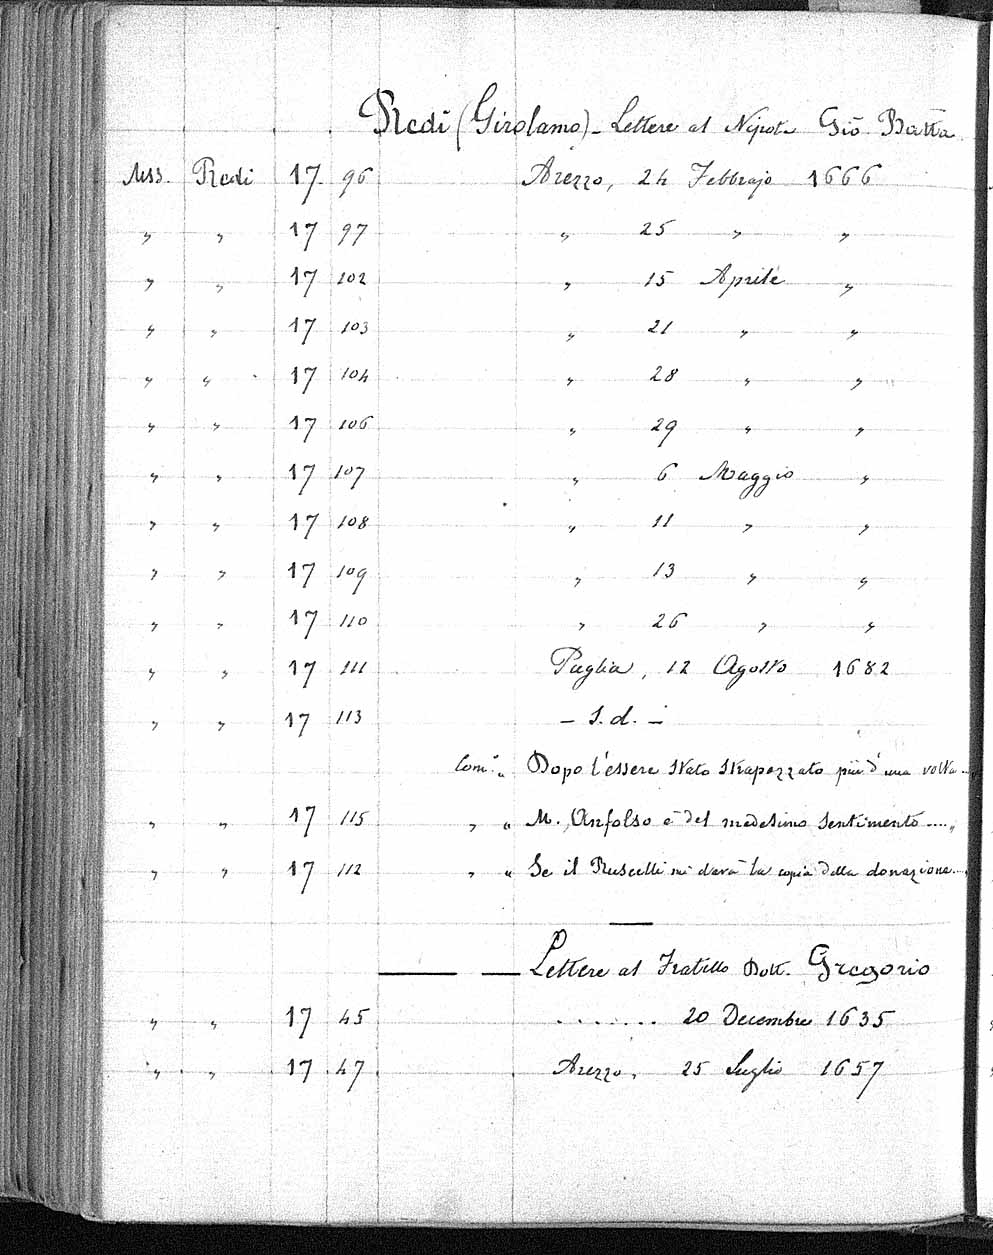 Redi (Girolamo) - Lettere al Nipote Gio. Batta
Mss. Redi 17 96 Arezzo, 24 Febbrajo 1666
" " 17 97 " 25 " "
" " 17 102 " 15 Aprile "
" " 17 103 " 21 " "
" " 17 104 " 28 " "
" " 17 106 " 29 " "
" " 17 107 " 6 Maggio "
" " 17 108 " 11 " "
" " 17 109 " 13 " "
" " 17 110 " 26 " "
" " 17 111 Puglia, 12 Agosto 1682
" " 17 113 - S. d. -
Com. " Dopo l'essere stato strapazzato più d'una volta ..."
" " 17 115 " " M. Anfolso è del medesimo sentimento ...."
" " 17 112 " " Se il Ruscelli mi darà la copia della donazione ..."
Lettere al Fratello Dott. Gregorio
" " 17 45 ....... 20 Decembre 1635
" " 17 47 Arezzo, 25 Luglio 1657